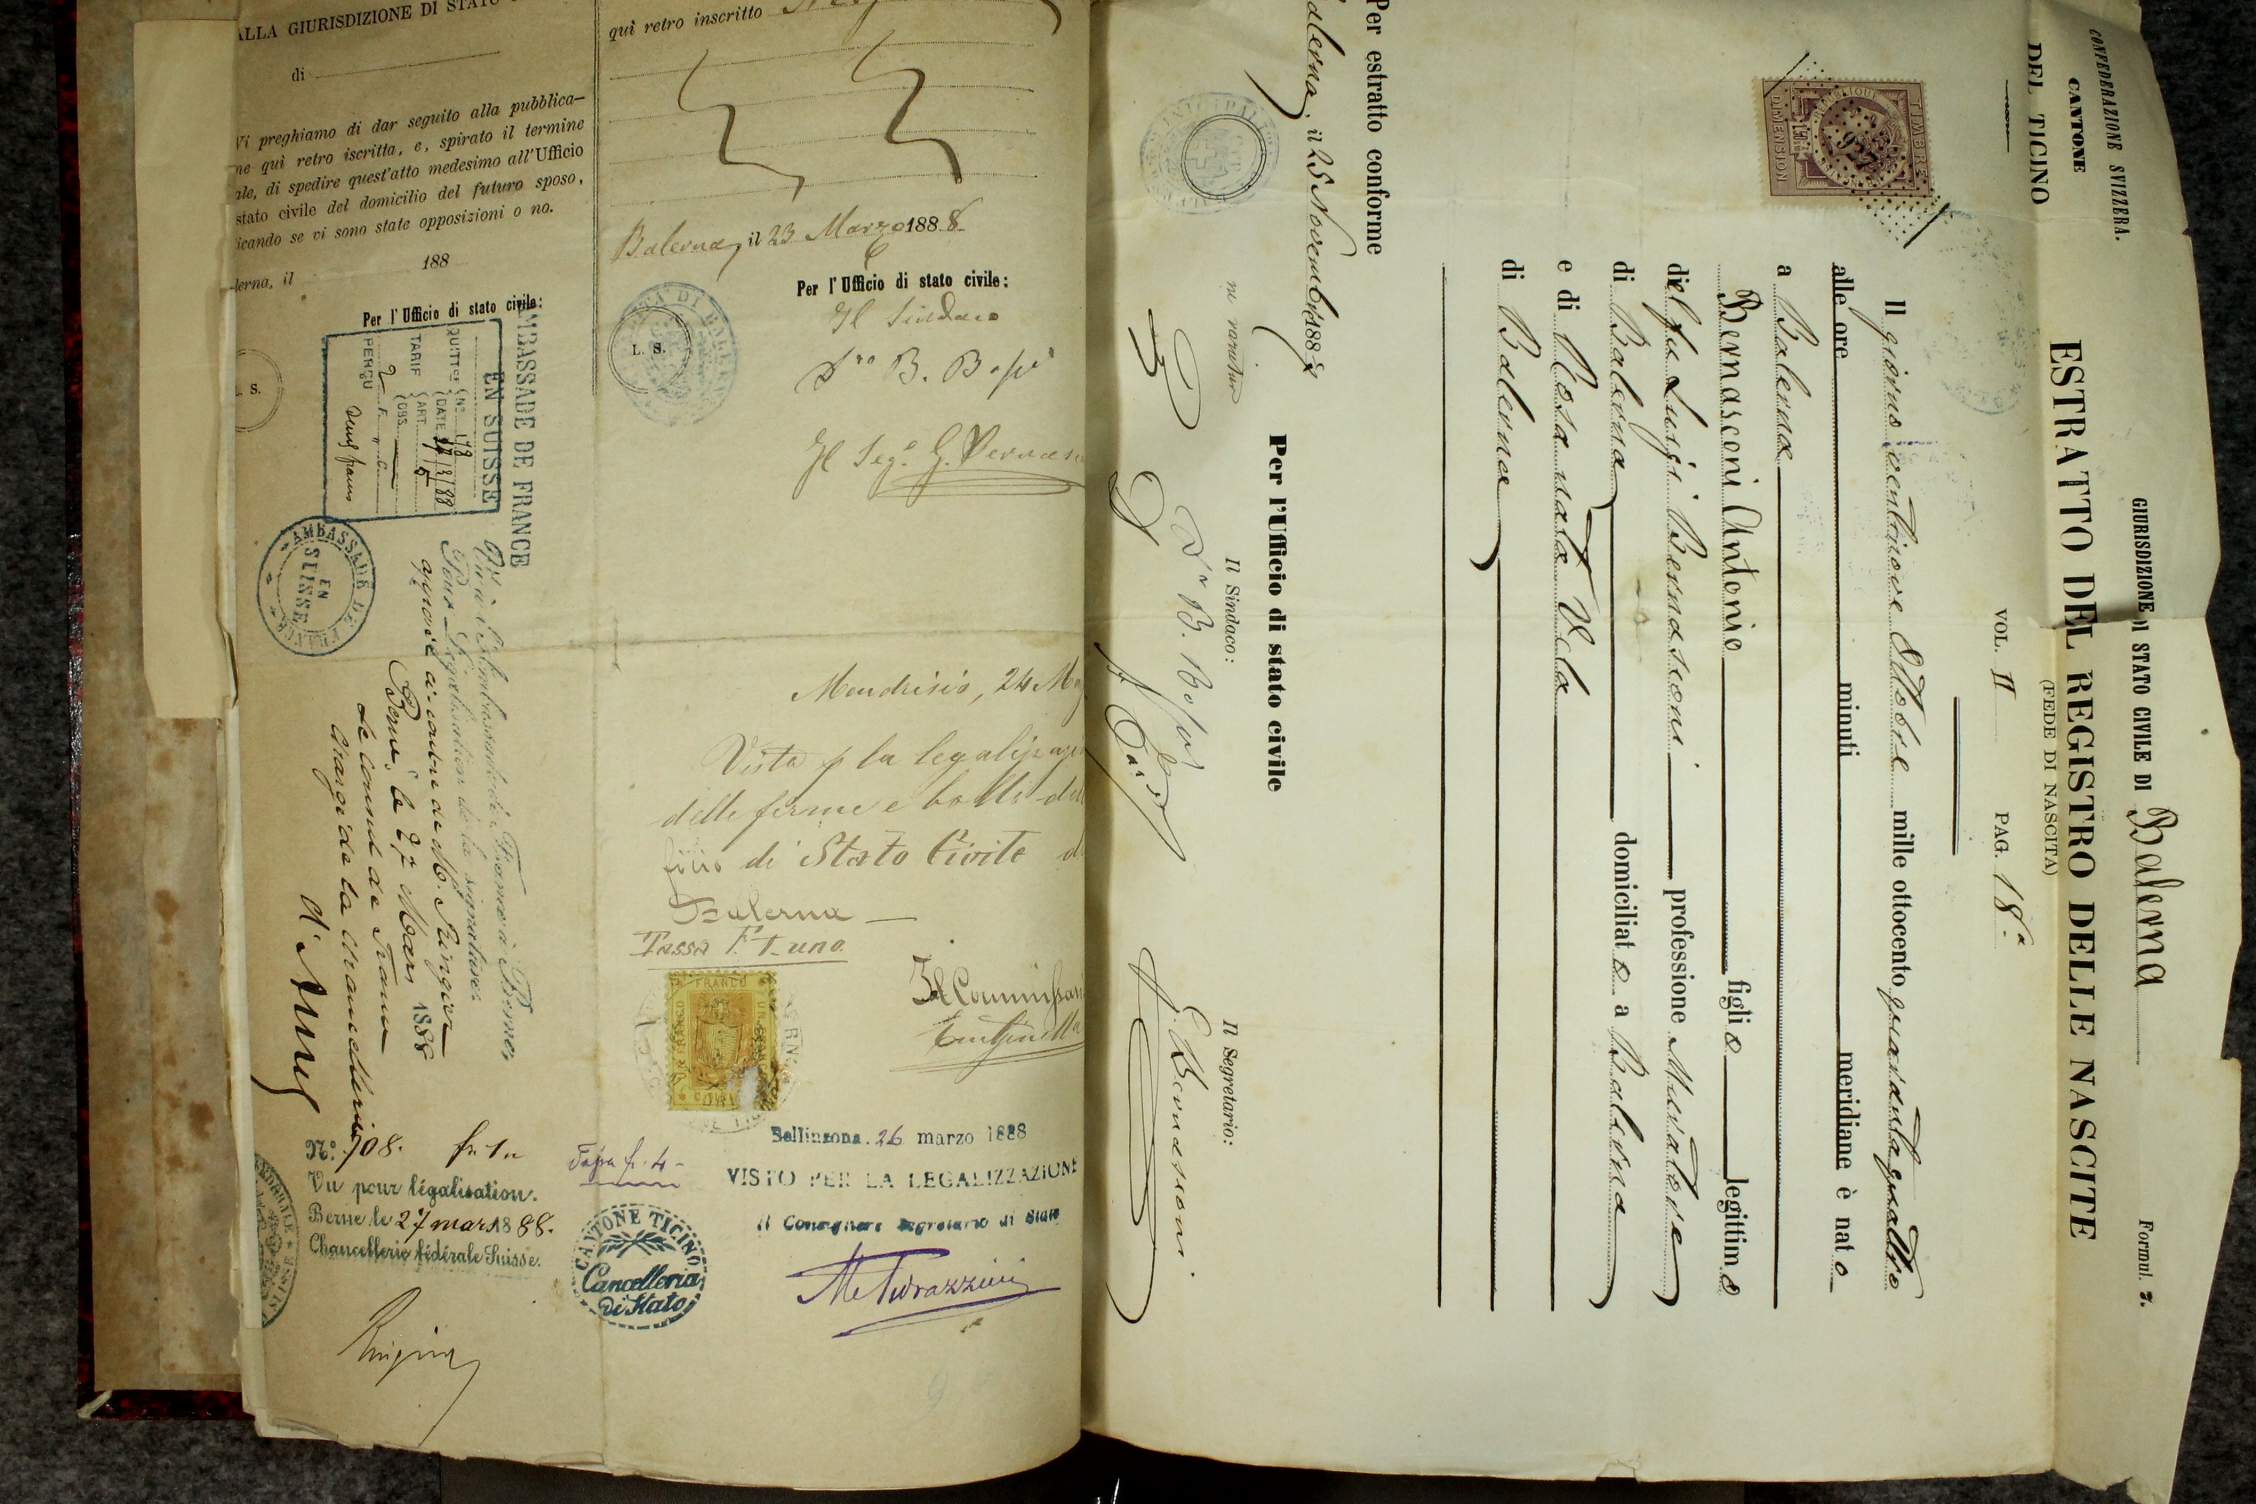 ALLA GIURISDIZIONE DI STATO
di
Vi preghiamo di dar seguito alla pubblica-
ne qui retro iscritta, e, spirato il termine
ale, di spedire quest'atto medesimo all'Ufficio
stato civile del domicilio del futuro sposo,
icando se vi sono state opposizioni o no.
lerna, il 188
Per l'Ufficio di stato civile:
L. S.
AMBASSADE DE FRANCE
EN SUISSE
QUITTCE No 178
DATE 27/3/88
TARIF ART. 5
OBS.
PERÇU 2 F. " C.
deux francs
AMBASSADE DE FRANCE
EN
SUISSE
Vu à l'Ambassade de France à Berne,
Pour Légalisation de la signature
apposée ci-contre de M. Ringier
Berne, le 27 Mars 1888
Le Consul de France
Chargé de la Chancellerie
d'
No. 708. fr. 1 "
Vu pour légalisation.
Berne le 27 mars 1888.
Chancellerie fédérale Suisse.
Ringier
qui retro inscritto
Balerna, il 23 Marzo 1888
Per l'Ufficio di stato civile:
Il Sindaco
B.
L. S.
Il Segº. G.
Mendrisio, 24
Vista p la
delle firme e bolli
di Stato Civile
Balerna
Tassa F. 1 uno.
FRANCO
Bellinzona, 26 marzo 1888
Tassa fr. 4 -
VISTO PER LA LEGALIZZAZIONE
Il Consigliere Segretario di Stato
CANTONE TICINO
Cancelleria
Di Stato
CONFEDERAZIONE SVIZZERA.
CANTONE
DEL TICINO
GIURISDIZIONE DI STATO CIVILE DI Balerna
Formul. 7.
ESTRATTO DEL REGISTRO DELLE NASCITE
(FEDE DI NASCITA)
VOL. II PAG. 18.a
TIMBRE
DIMENSION
Il giorno ventinove Ottobre mille ottocento quarantaquattro
alle ore minuti meridiane è nato
a Balerna
Bernasconi Antonio figlio legittimo
del fu Luigi Bernasconi professione Muratore
di Balerna domiciliato a Balerna
e di Rosa nata Vela
di Balerna
Per estratto conforme
alerna, il 25 Novembre 1887
Per l'Ufficio di stato civile
Il Sindaco:
Il Segretario:
Bernasconi